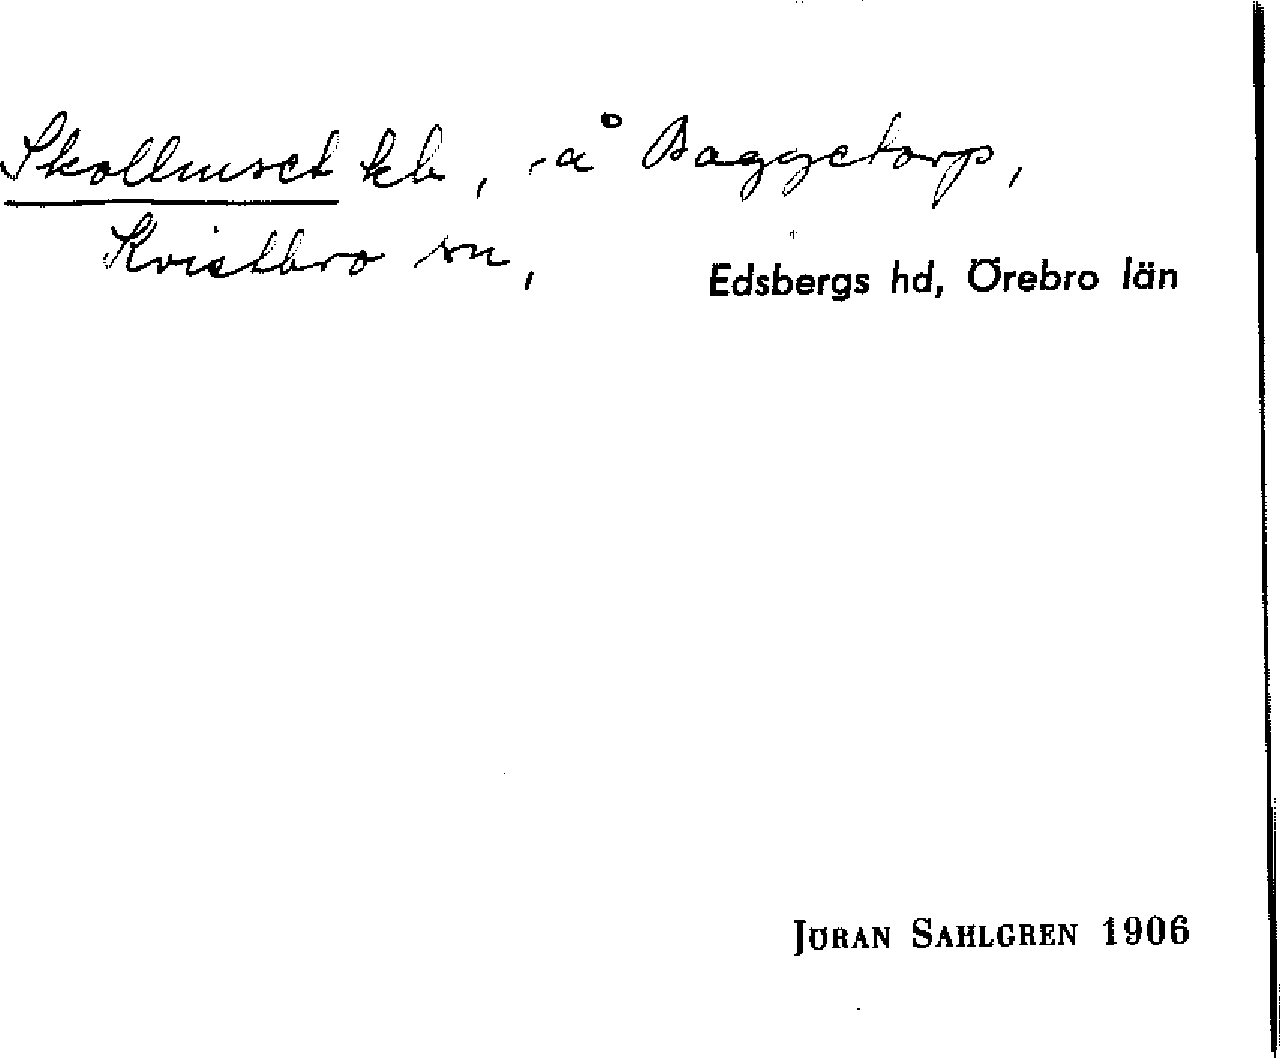 kb, å Baggetorp,
Kvistbro sn,
Edsbergs hd, Örebro län
JÖRAN SAHLGREN 1906